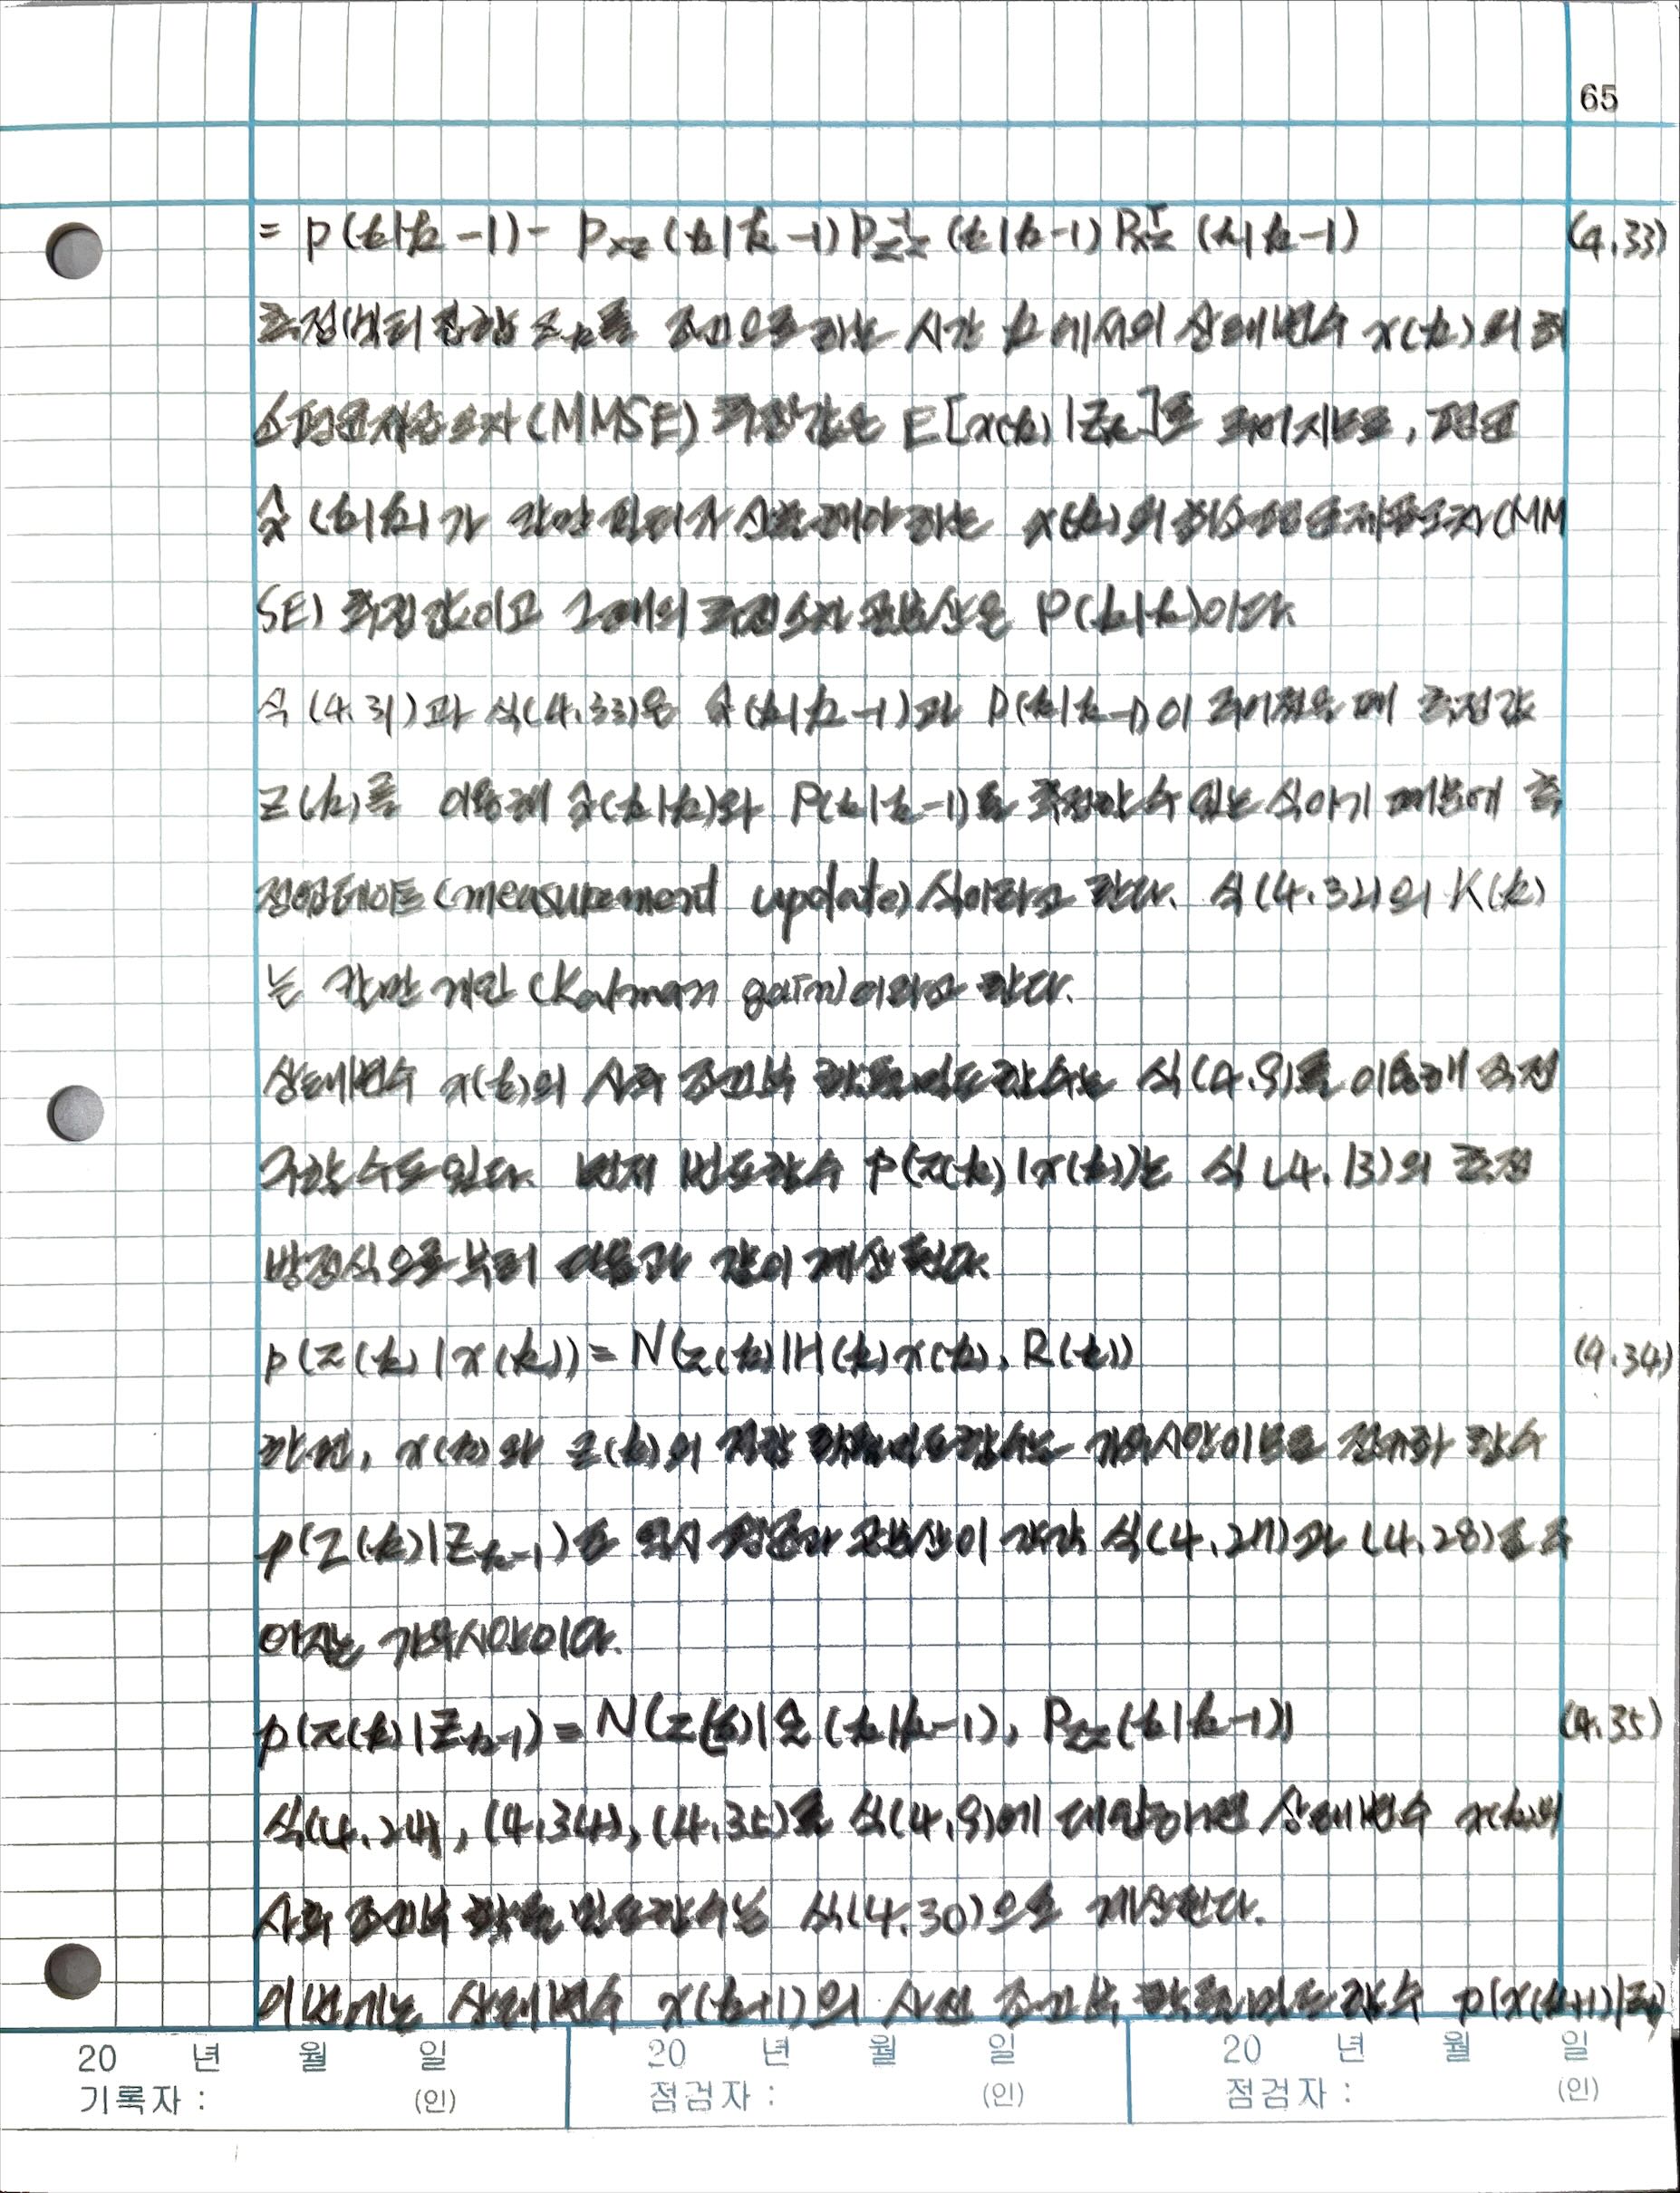 65
= p(k|k-1) - P_xz(k|k-1) P_zz^-1(k|k-1) P_xz^T(k|k-1) (4.33)
측정벡터 집합 Z_k를 조건으로 하는 시간 k에서의 상태변수 x(k)의 최
소평균제곱오차(MMSE) 추정값은 E[x(k)|Z_k]로 주어지므로, 평균
x̂(k|k)가 칼만 필터가 산출해야 하는 x(k)의 최소평균제곱오차(MM
SE) 추정값이고 그 때의 추정오차 공분산은 P(k|k)이다.
식(4.31)과 식(4.33)은 x̂(k|k-1)과 P(k|k-1)이 주어졌을 때 측정값
z(k)를 이용해 x̂(k|k)와 P(k|k-1)을 추정할 수 있는 식이기 때문에 측
정업데이트(measurement update)식이라고 한다. 식(4.32)의 K(k)
는 칼만 게인(Kalman gain)이라고 한다.
상태변수 x(k)의 사후 조건부 확률밀도함수는 식(4.9)를 이용해 직접
구할 수도 있다. 먼저 빈도함수 p(z(k)|x(k))는 식(4.13)의 측정
방정식으로부터 다음과 같이 계산된다.
p(z(k)|x(k)) = N(z(k)|H(k)x(k), R(k)) (4.34)
한편, x(k)와 z(k)의 결합 확률밀도함수는 가우시안이므로 정규화 함수
p(z(k)|Z_k-1)도 역시 평균과 공분산이 각각 식(4.27)과 (4.28)로 주
어지는 가우시안이다.
p(z(k)|Z_k-1) = N(z(k)|ẑ(k|k-1), P_zz(k|k-1)) (4.35)
식(4.24), (4.34), (4.35)를 식(4.9)에 대입하면 상태변수 x(k)의
사후 조건부 확률밀도함수는 식(4.30)으로 계산된다.
이번에는 상태변수 x(k+1)의 사전 조건부 확률밀도함수 p(x(k+1)|Z_k)
20 년 월 일 20 년 월 일 20 년 월 일
기록자 : (인) 점검자 : (인) 점검자 : (인)